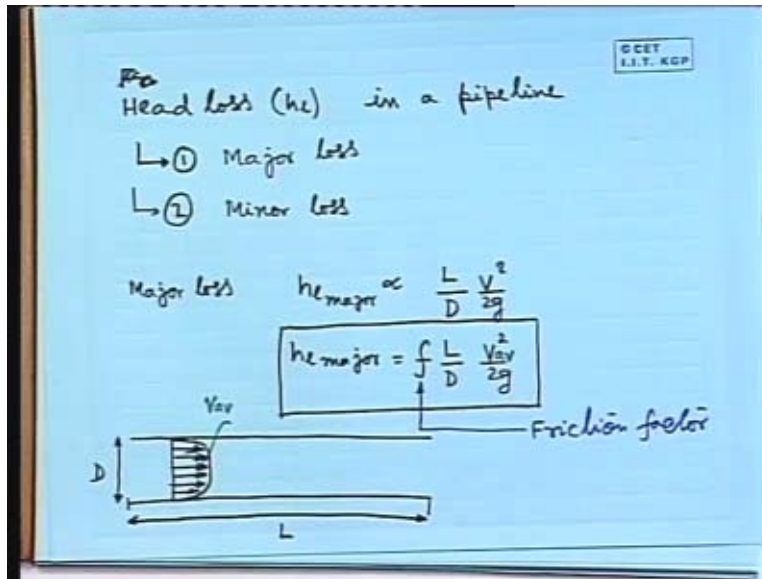 © CET
I.I.T. KGP
Head loss (hl) in a pipeline
↳① Major loss
↳② Minor loss
Major loss hl major ∝ L/D V²/2g
hl major = f L/D Vav²/2g
Vav
Friction factor
D
L